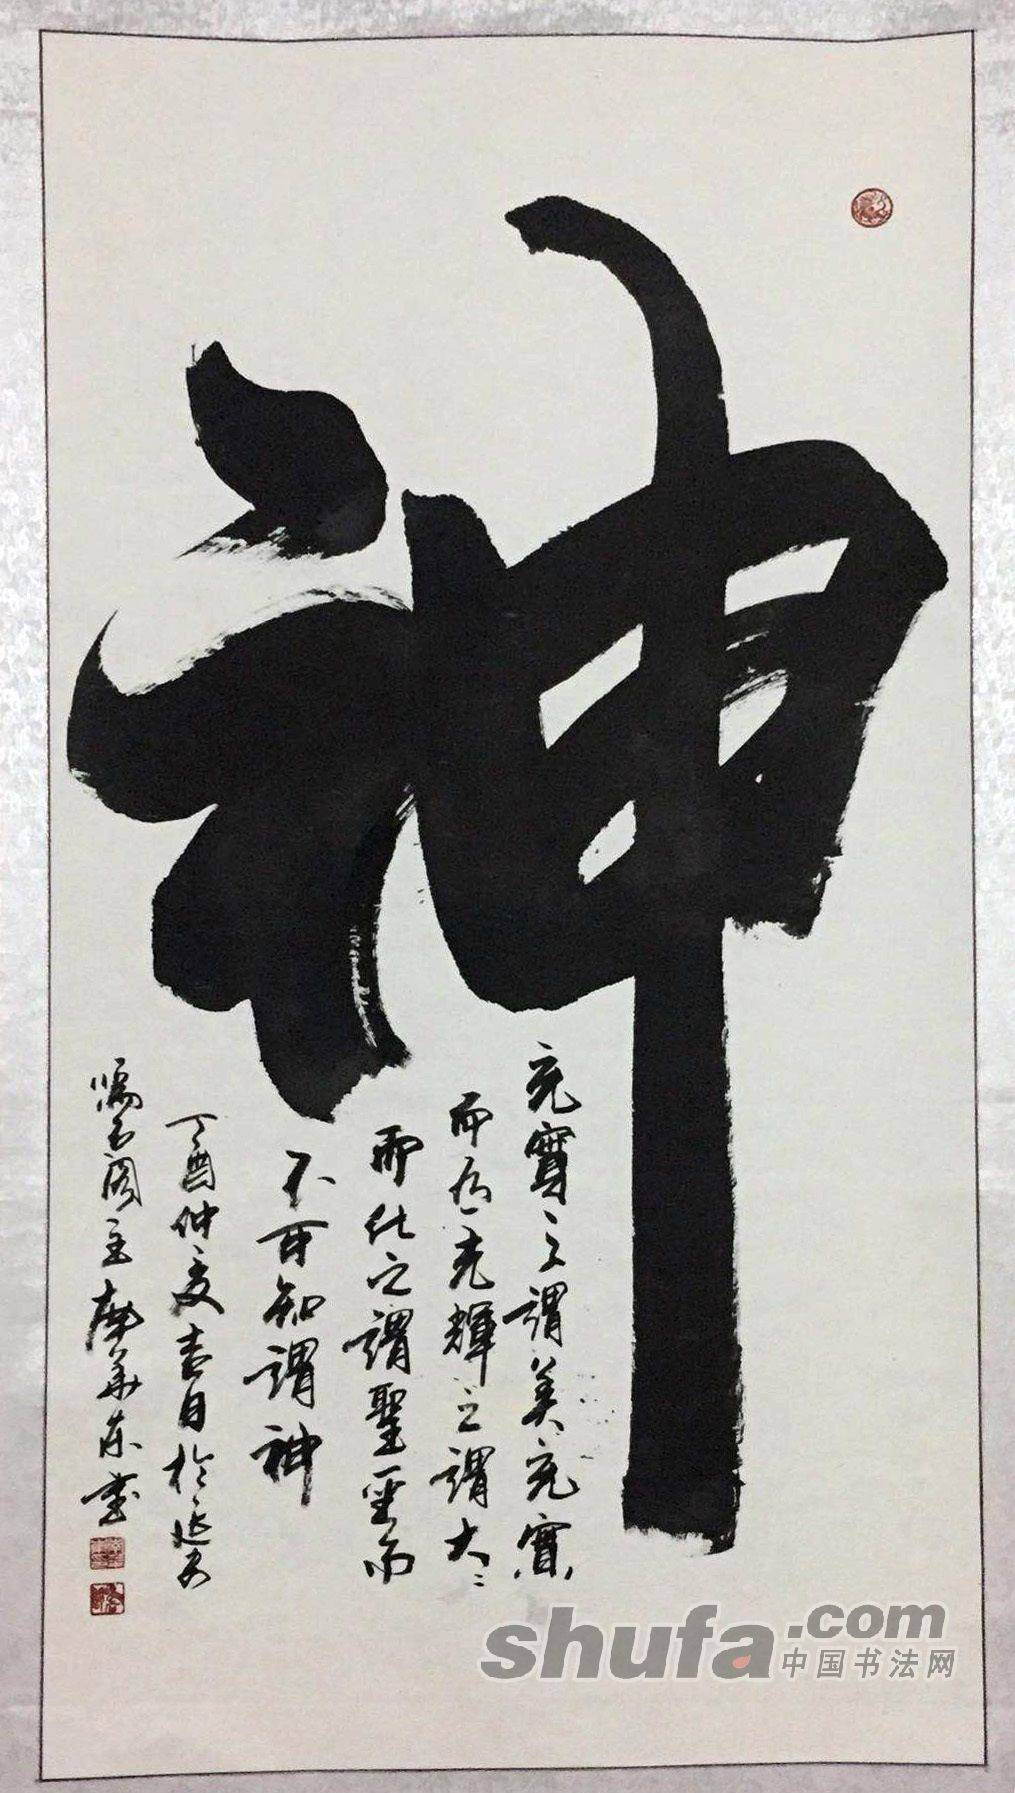 神
充實之謂美充實
而有光輝之謂大二
而化之謂聖聖而
不可知謂神
丁酉仲夏吉日於延安
主 華東書
shufa.com
中国书法网